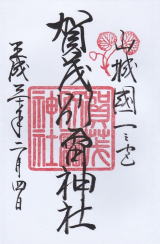 山城國一之宮
賀茂別雷神社
平成三十年二月四日
賀茂別雷神社